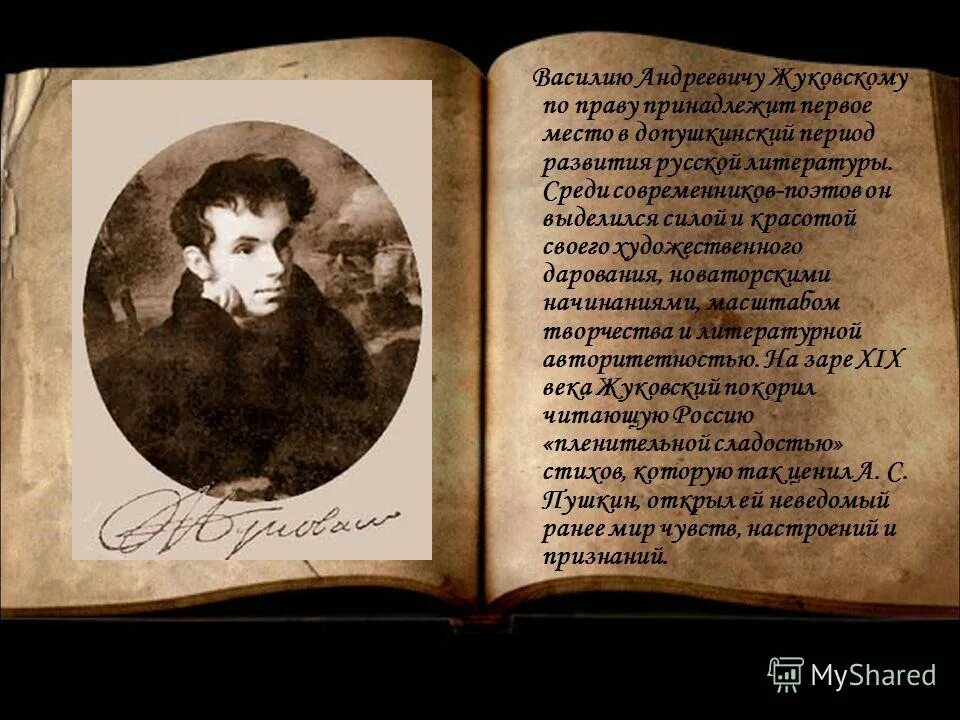 Василию Андреевичу Жуковскому
по праву принадлежит первое
место в допушкинский период
развития русской литературы.
Среди современников-поэтов он
выделился силой и красотой
своего художественного
дарования, новаторскими
начинаниями, масштабом
творчества и литературной
авторитетностью. На заре XIX
века Жуковский покорил
читающую Россию
«пленительной сладостью»
стихов, которую так ценил А. С.
Пушкин, открыл ей неведомый
ранее мир чувств, настроений и
признаний.
Жуковский
MyShared